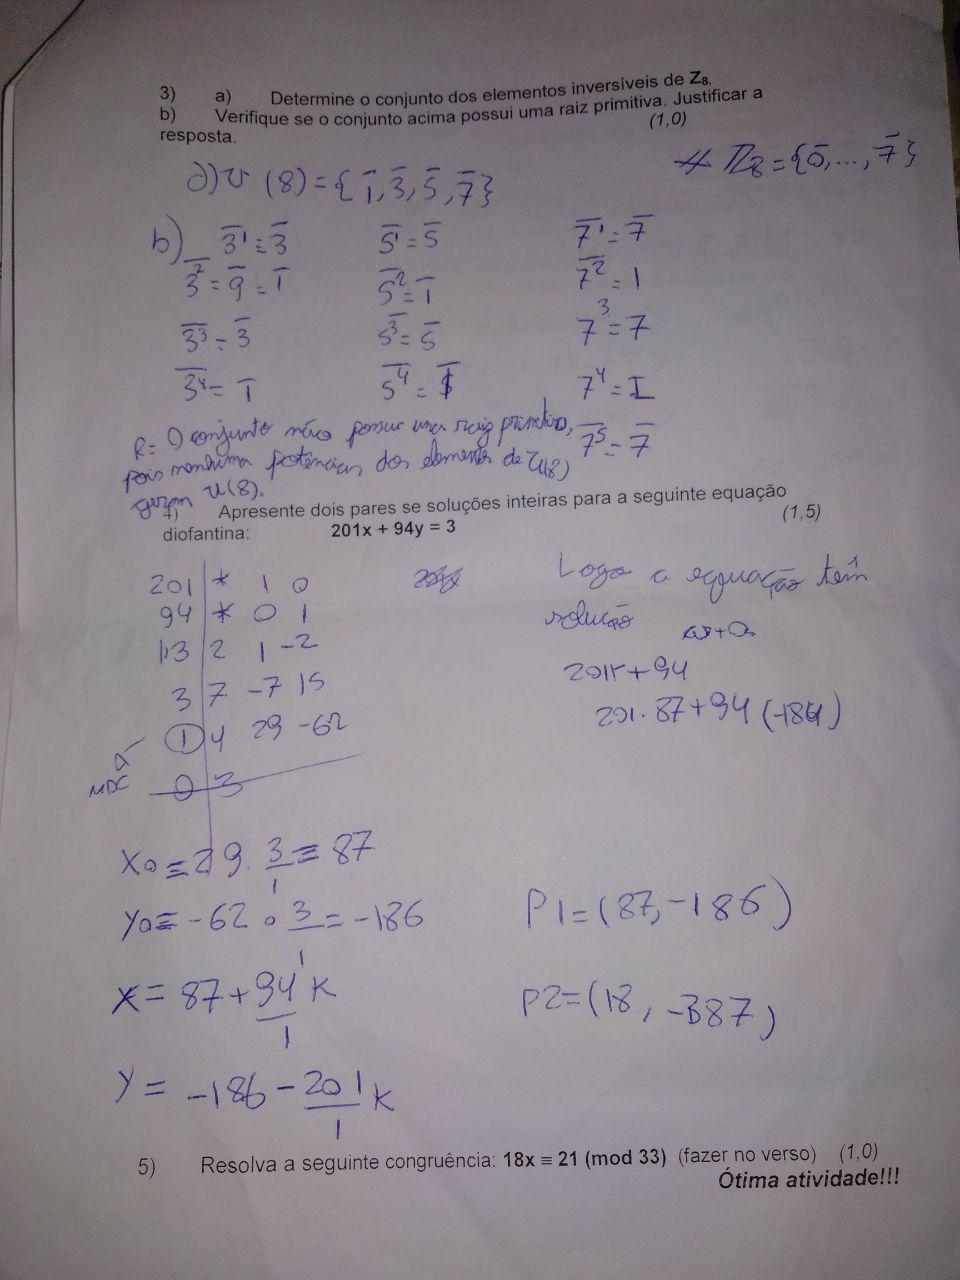 3) a) Determine o conjunto dos elementos inversíveis de Z₈.
b) Verifique se o conjunto acima possui uma raiz primitiva. Justificar a
resposta. (1,0)
# Z₈ = {0̅, ..., 7̅}
a) U (8) = {1̅, 3̅, 5̅, 7̅}
b) 3̅¹ = 3̅ 5̅¹ = 5̅ 7̅¹ = 7̅
3̅² = 9̅ = 1̅ 5̅² = 1̅ 7̅² = 1
3̅³ = 3̅ 5̅³ = 5̅ 7³ = 7
3̅⁴ = 1̅ 5̅⁴ = 1̅ 7⁴ = 1
R = O conjunto não possui uma raiz primitiva, 7̅⁵ = 7̅
pois nenhuma potências dos elementos de U(8)
geram U(8).
4) Apresente dois pares se soluções inteiras para a seguinte equação
diofantina: 201x + 94y = 3 (1,5)
201 * 1 0
94 * 0 1
13 2 1 -2
3 7 -7 15
1 4 29 -62
MDC
0 3
Logo a equação têm
solução
201r + 94
201 . 87 + 94 (-186)
X0 = 29 . 3/1 = 87
Y0 = -62 . 3/1 = -186
P1 = (87, -186)
X = 87 + 94/1 K
P2 = (18, -387)
Y = -186 - 201/1 K
5) Resolva a seguinte congruência: 18x ≡ 21 (mod 33) (fazer no verso) (1,0)
Ótima atividade!!!